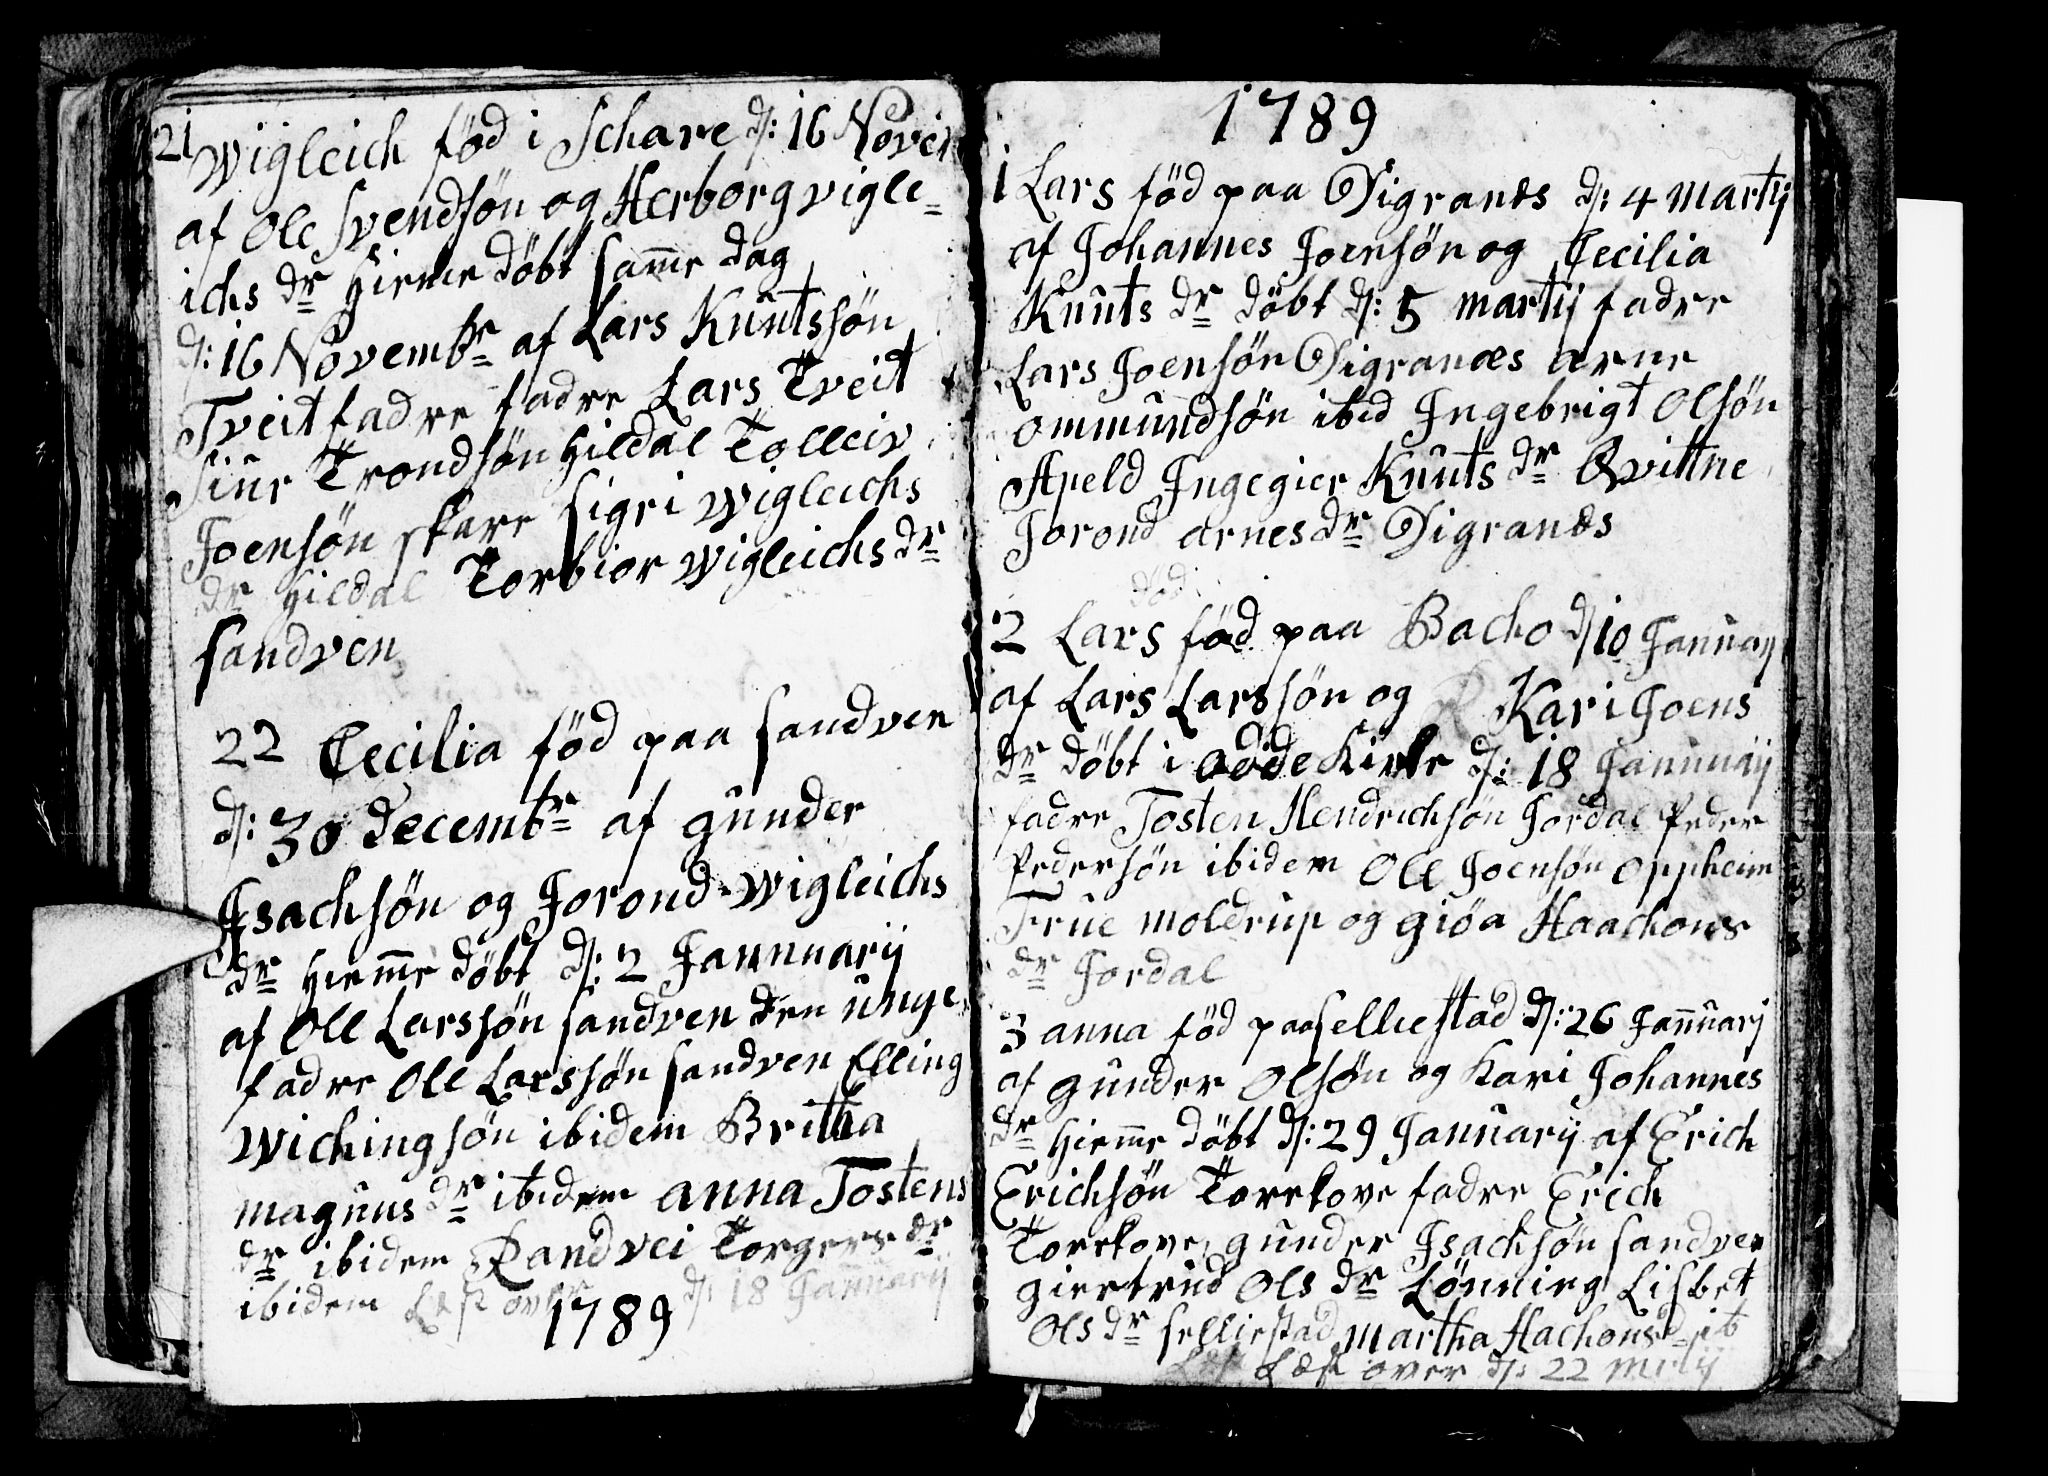 21 Wigleich föd i Schare d: 16 Nover
af Ole Svendsön og Herborg vigle=
ichs dr hieme döbt same dag
d: 16 Novembr af Lars Knutssön
Tveit fadre fadre Lars Tveit
Siur Trondsön Hildal Tolleiv
Joensön skare sigri wigleichs
dr Hildal Torbior wigleichs dr
sandven
22 Cecilia föd paa sandven
d: 30 decembr af gunder
Isachsön og Jorond wigleichs
dr hieme döbt d: 2 Jannuarij
af Ole Larssön sandven den unge
fadre Ole Larssön sandven Elling
Wichingsön ibidem Britha
magnus dr ibidem anna Tostens
dr ibidem Randvei Torgers dr
ibidem Læst over d: 18 Januarij
1789
1789
1 Lars föd paa Digranes d: 4 martij
af Johannes Joensön og Cecilia
Knuts dr döbt d: 5 martij fadre
Lars Joensön Digranæs arne
ommundsön ibid Ingebrigt Olsön
Apeld Ingegier Knuts dr Qvittne
Jorond arnes dr Digranæs
död
2 Lars föd paa Bacho d 10 Januarj
af Lars Larssön og Kari Joens
dr döbt i odde Kirke d: 18 Januarij
fadre Tosten Hendrichsön Jordal Peder
Pedersön ibidem Ole Joensön Oppheim
Frue Moldrup og giöa Haachons
dr Jordal
3 anna föd paa selliestad d: 26 Januarj
af gunder Olsön og Kari Johannes
dr hieme döbt d: 29 Januarij af Erich
Erichsön Torekove fadre Erich
Torekove gunder Isachsön sandven
giertrud Ols dr Lönning Lisbet
Ols dr selliestad martha Hachons d ib
Læst Læst over d: 22